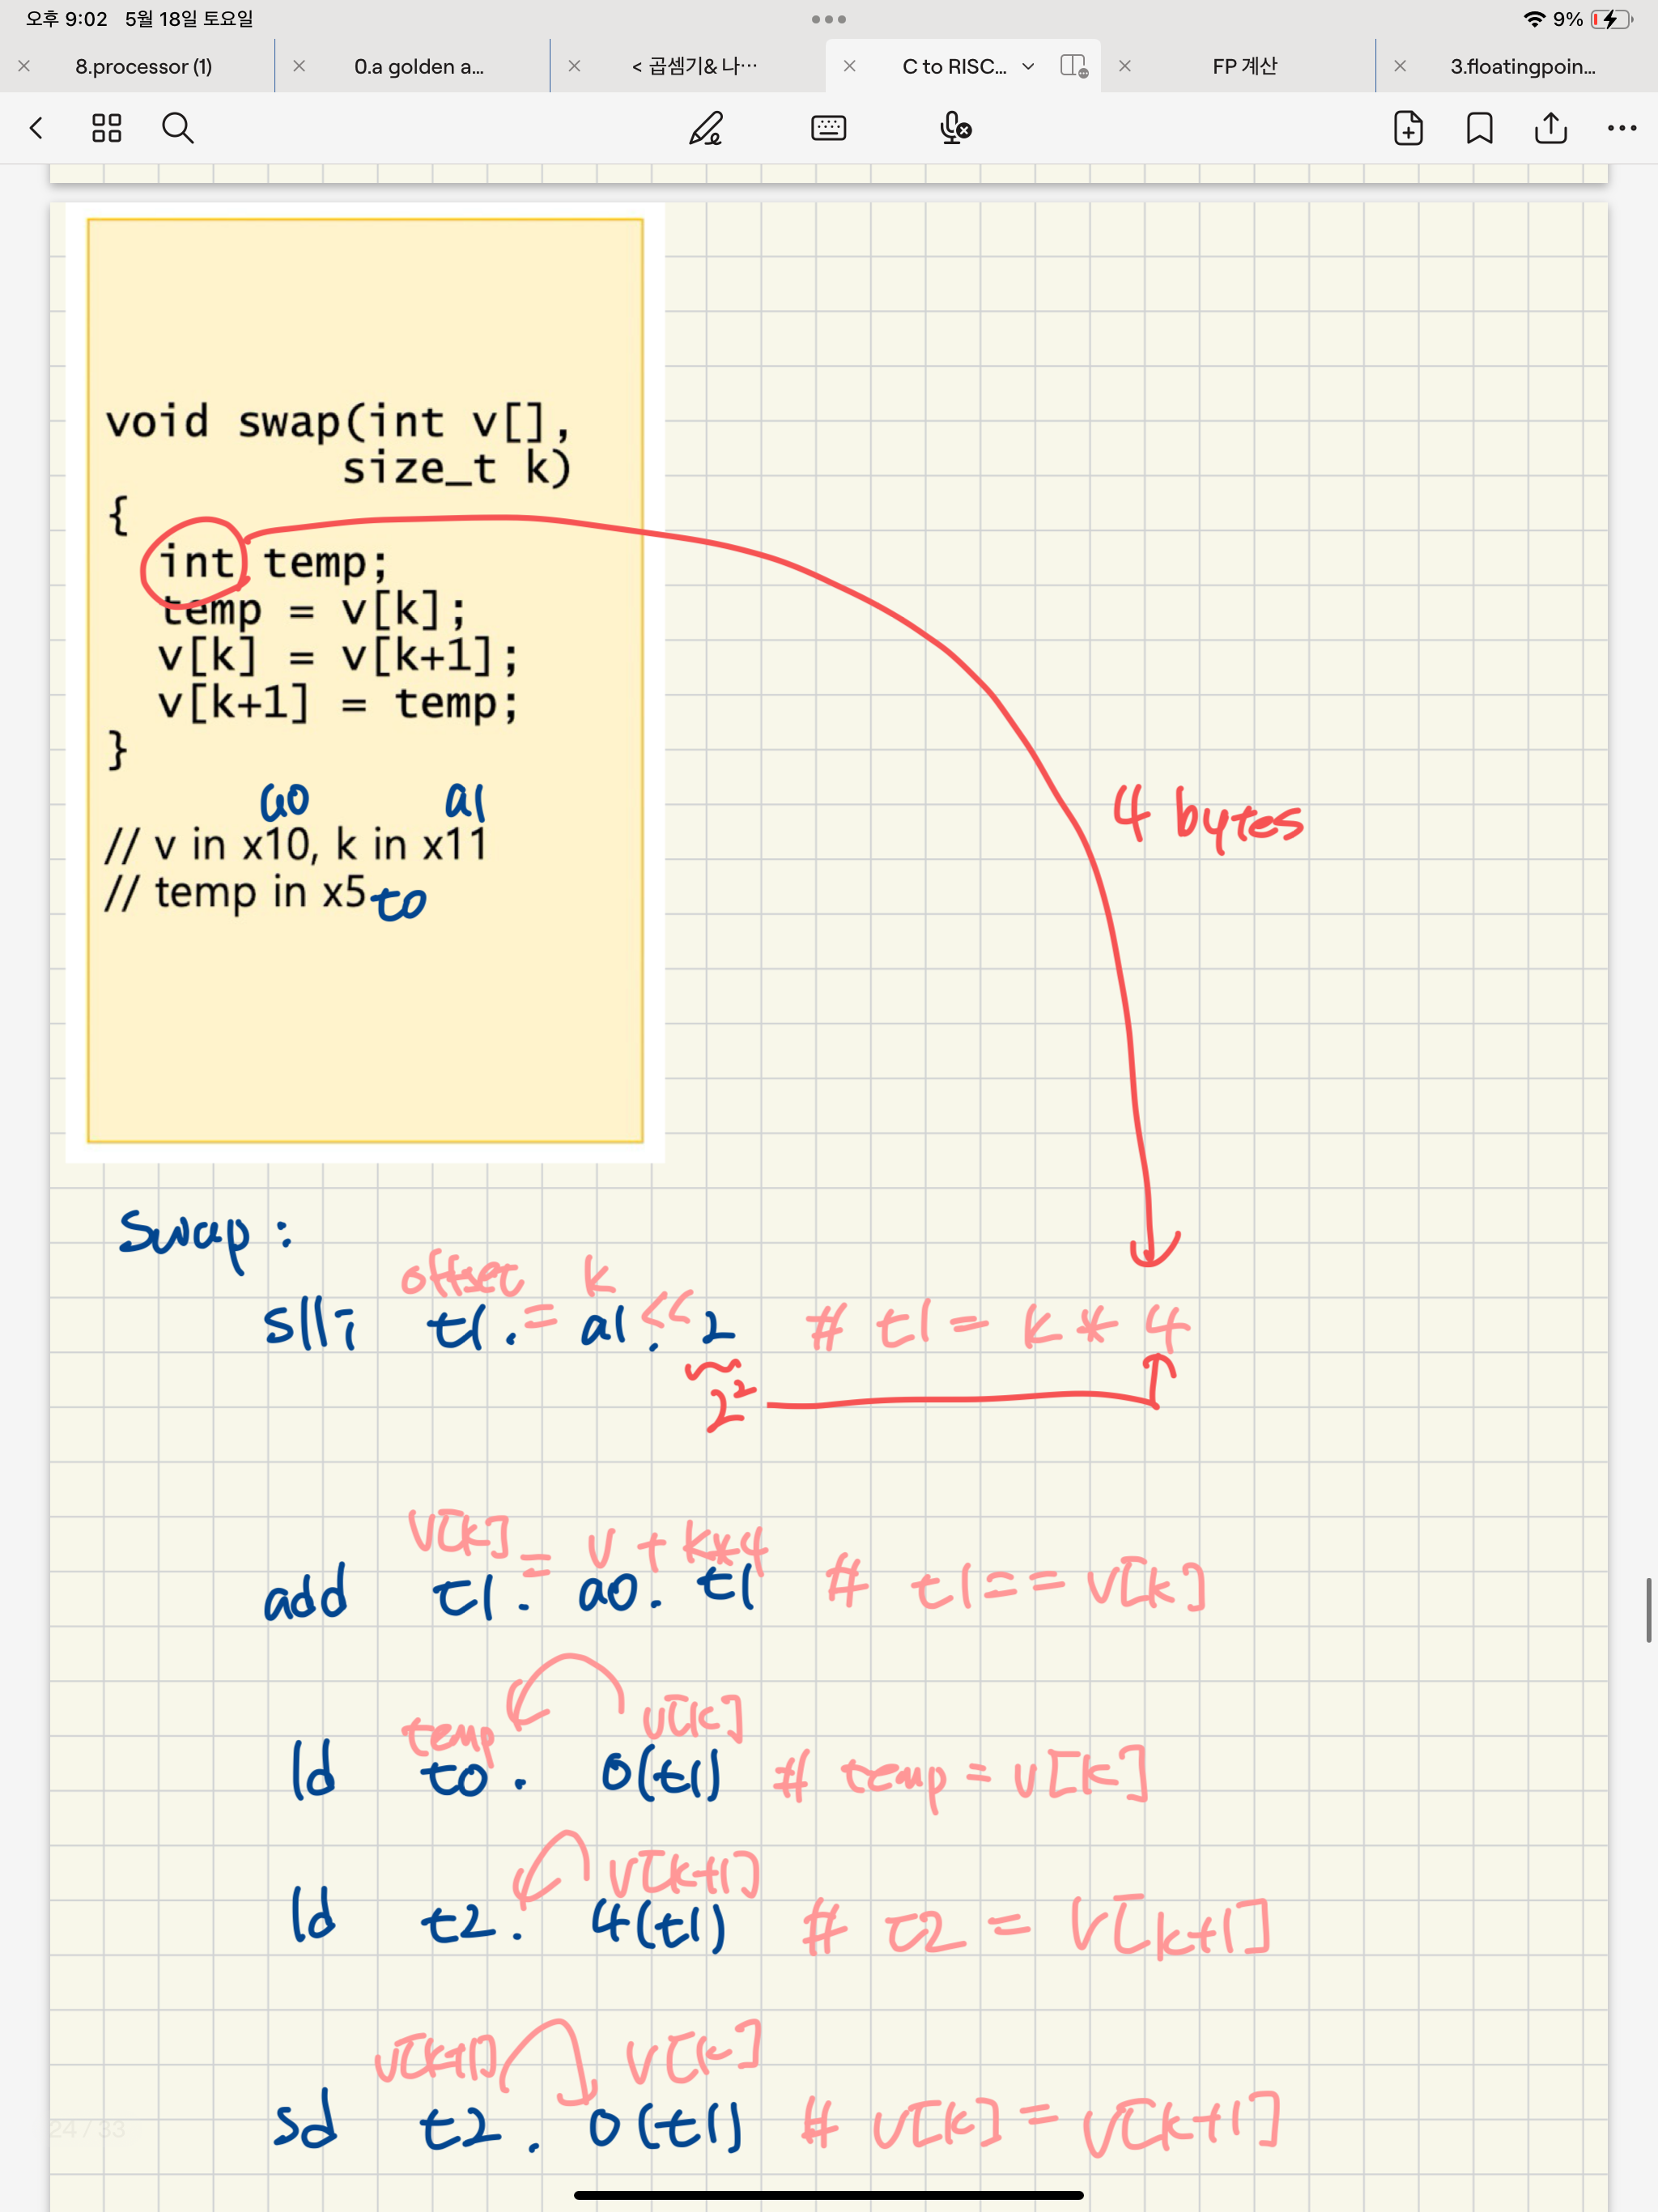 오후 9:02 5월 18일 토요일
9%
8.processor (1)
0.a golden a...
< 곱셈기& 나···
C to RISC...
FP 계산
3.floatingpoin...
void swap(int v[],
size_t k)
{
int temp;
temp = v[k];
v[k] = v[k+1];
v[k+1] = temp;
}
a0 a1
// v in x10, k in x11
// temp in x5 t0
4 bytes
swap :
offset k
slli t1. = a1. << 2 # t1 = k * 4
2²
V[k] = V + k*4
add t1. a0. t1 # t1 == V[k]
temp v[k]
ld t0. 0(t1) # temp = v[k]
V[k+1]
ld t2. 4(t1) # t2 = V[k+1]
v[k+1] v[k]
sd t2. 0(t1) # v[k] = v[k+1]
24 / 33